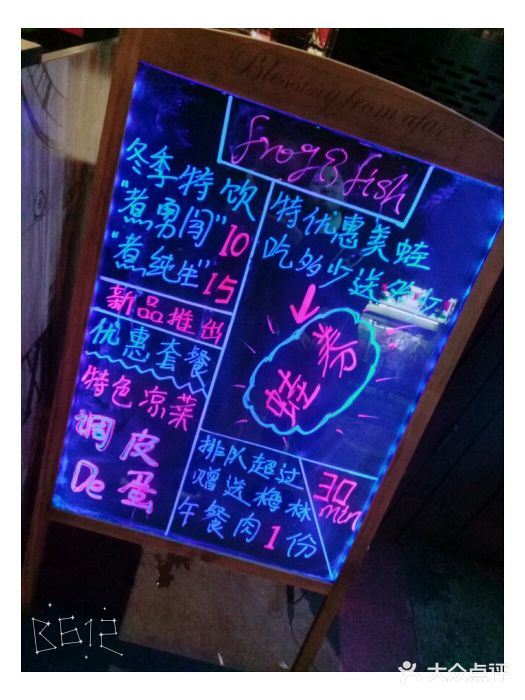 Blessing from afar
frog&fish
冬季特饮
"煮勇闯"10
"煮纯生"15
新品推出
优惠套餐
特色凉菜
调皮
De蛋
特优惠美蛙
吃多少送
粉
蛙
排队超过
30min
赠送梅林
午餐肉1份
B612
大众点评